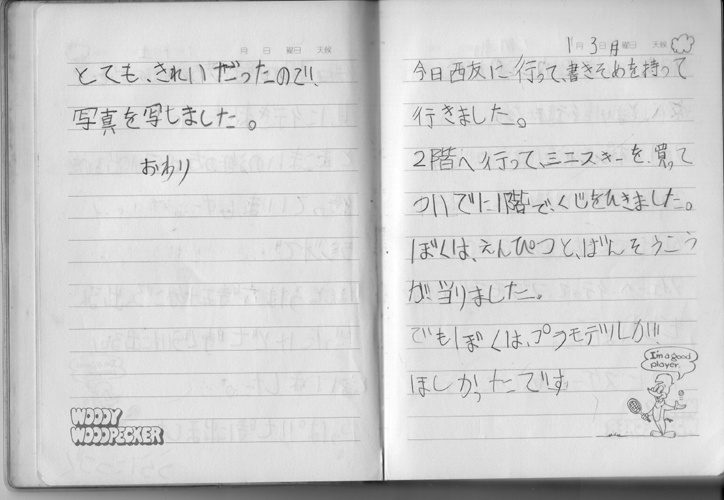 月 日 曜日 天候
とても、きれいだったので、
写真を写しました。
おわり
WOODY
WOODPECKER
1月 3日 月曜日 天候
今日西友に行って、書きぞめを持って
行きました。
2階へ行って、ミニスキーを、買って
ついでに1階で、くじをひきました。
ぼくは、えんぴつと、ばんそうこう
が当りました。
でもぼくは、プラモデルが、
ほしかったです。
I'm a good
player.